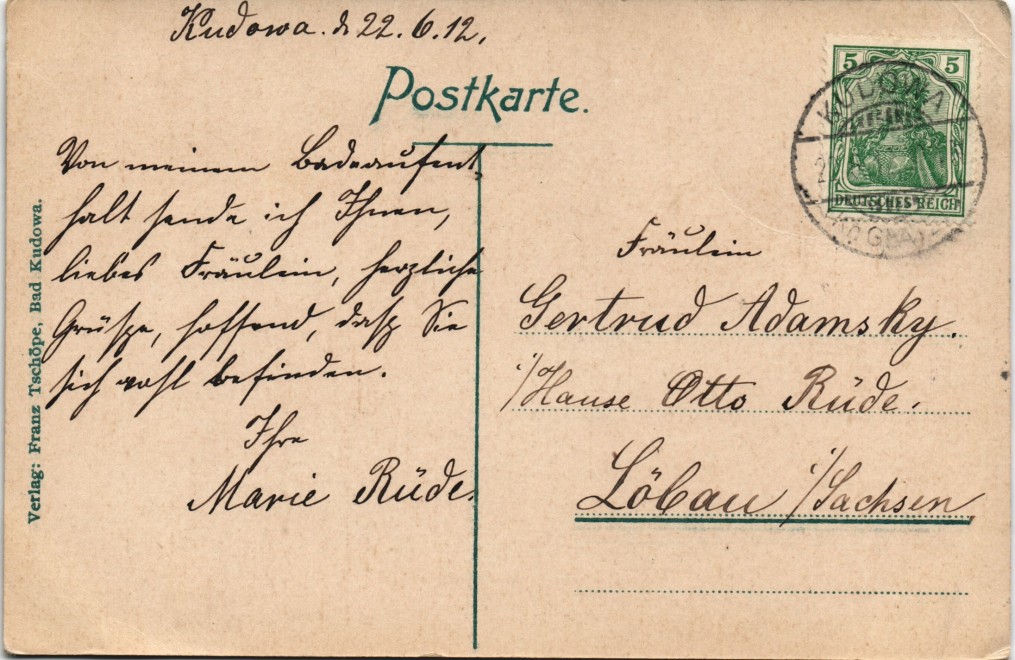 Kudowa. d. 22. 6. 12.
Postkarte.
Von meinem Badeaufent-
halt sende ich Ihnen,
liebes Fräulein, herzliche
Grüße, hoffend, daß Sie
sich wohl befinden.
Ihre
Marie Rüde.
Verlag: Franz Tschöpe, Bad Kudowa.
5 5
DEUTSCHES REICH
KUDOWA
Fräulein
Gertrud Adamsky.
i/Hause Otto Rüde.
Löbau i/Sachsen